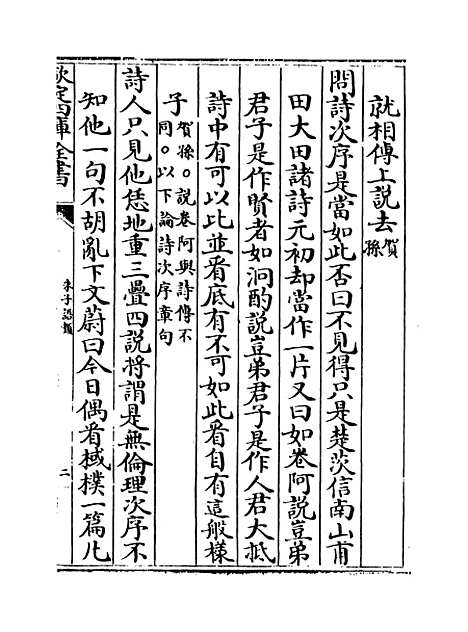 就相傳上說去賀孫
問詩次序是當如此否曰不見得只是楚茨信南山甫
田大田諸詩元初却當作一片又曰如卷阿說豈弟
君子是作賢者如泂酌說豈弟君子是作人君大抵
詩中有可以比並看底有不可如此看自有這般樣
子賀孫○說卷阿與詩傳不同○以下論詩次序章句
詩人只見他恁地重三疊四說將謂是無倫理次序不
知他一句不胡亂下文蔚曰今日偶看棫樸一篇凡
欽定四庫全書
朱子語類
二